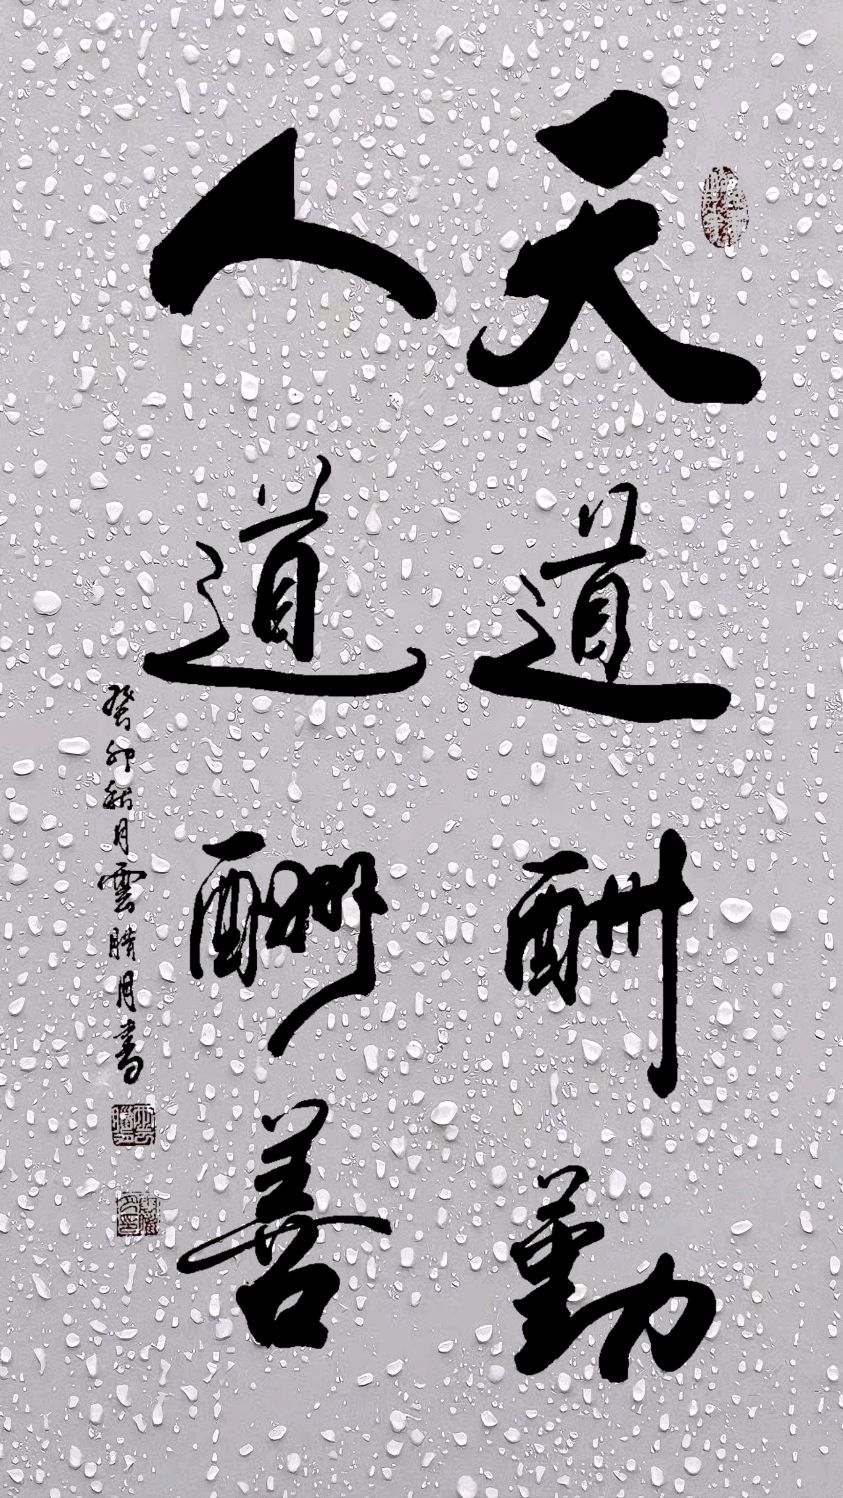 天道酬勤
人道酬善
癸卯秋月雲晴月書